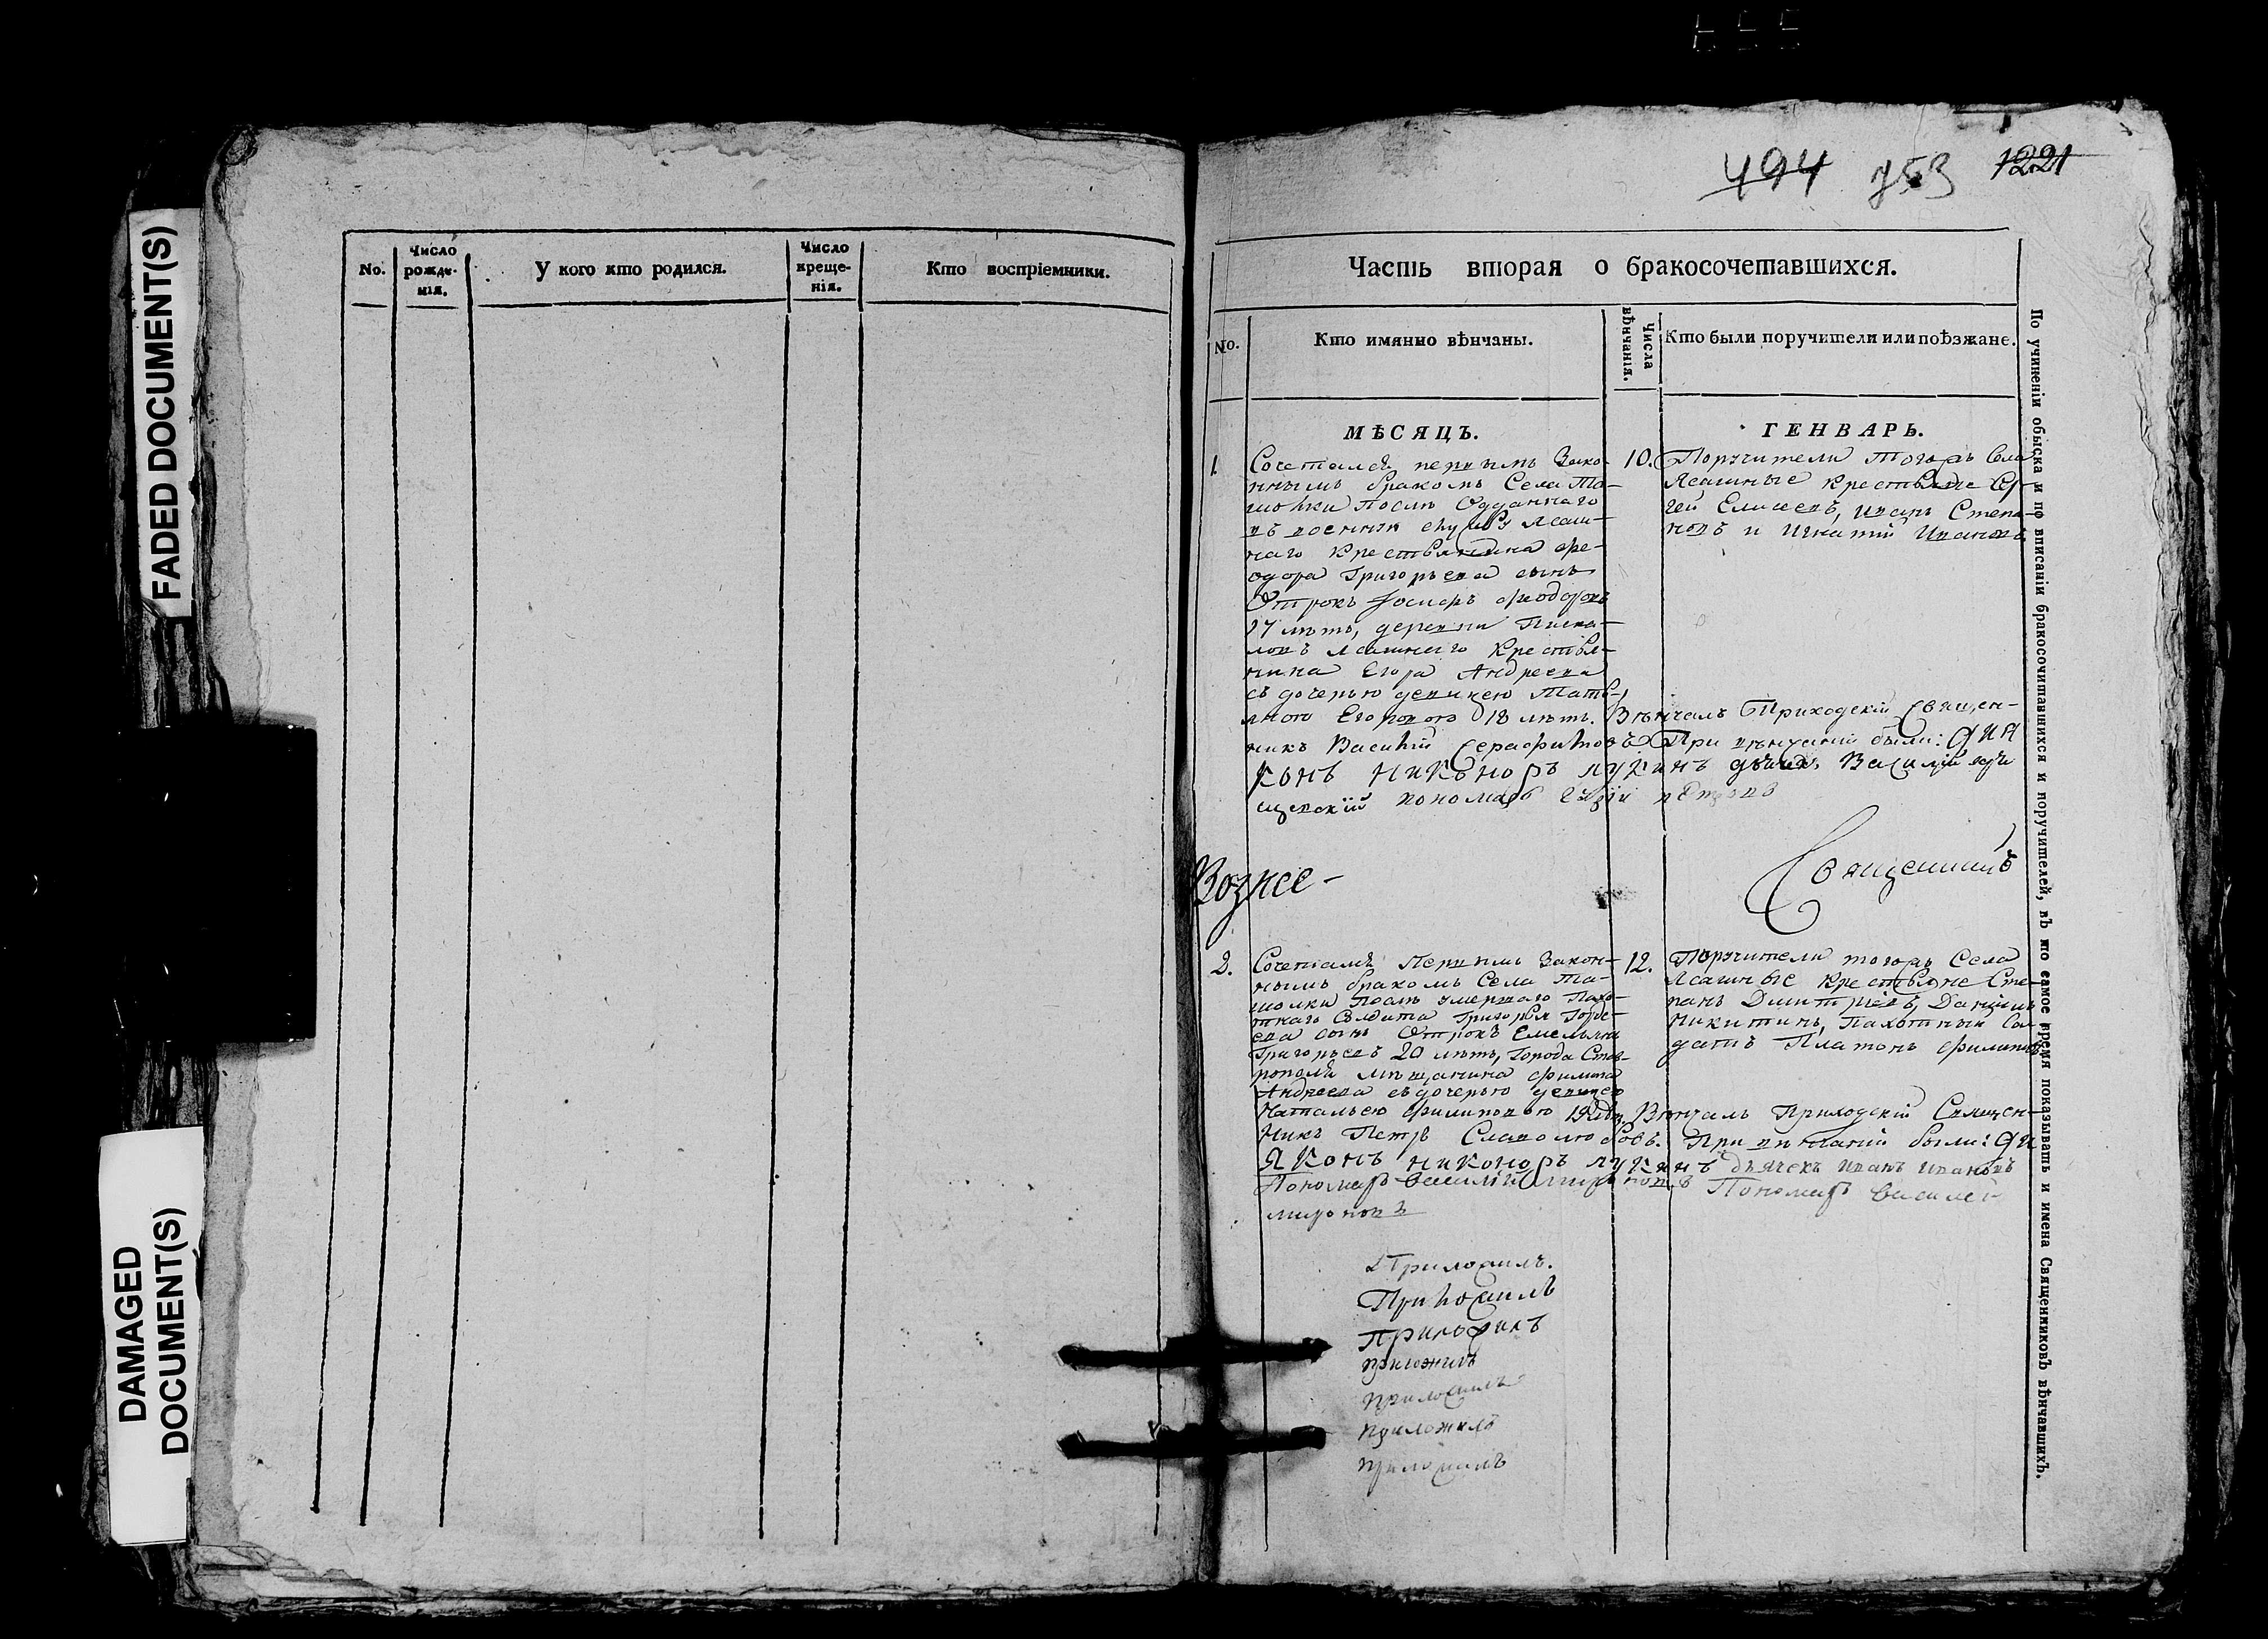 FADED DOCUMENT(S)
DAMAGED
DOCUMENT(S)
No.
Число
рожде-
нія.
У кого кто родился.
Число
креще-
нія.
Кто воспріемники.
494 753 1221
Часть вторая о бракосочетавшихся.
No.
Кто имянно вѣнчаны.
Числа
вѣнчанія.
Кто были поручители или поѣзжане.
МѢСЯЦЪ.
ГЕНВАРЬ.
1.
Сочетался первымъ Зако-
ннымъ бракомъ Села Та-
шолки послѣ Отданнаго
въ военную службу ясаш-
наго Крестьянина Фе-
одора Григорьева сынъ
Отрокъ Іосифъ Феодоровъ
17 лѣтъ, деревни Писка-
ловъ Ясашнаго Крестья-
нина Егора Андреева
съ дочерью девицею Тать-
яною Егоровою 18 лѣтъ.
10.
Поручители тогожъ Села
Ясашные крестьяне Сер-
гей Елисеевъ, Иванъ Степа-
новъ и Игнатій Ивановъ
Вѣнчалъ Приходскій Священ-
никъ Василій Серафимовъ При вѣнчаніи были: Диа
конъ Никоноръ Лукинъ дьячекъ Василій
пономарь Петровъ
Вознесе-
Священникъ
2.
Сочетался Первымъ Закон-
нымъ бракомъ Села Та-
шолки послѣ умершаго Пахо-
тнаго Солдата Григорья Горде-
ева сынъ Отрокъ Емельянъ
Григорьевъ 20 лѣтъ, Города Став-
рополя мѣщанина Филипа
Андреева съ дочерью девицею
Натальею Филиповою
12.
Поручители тогожъ Села
Ясашные крестьяне Сте-
панъ Дмитріевъ, Даніилъ
Никитинъ, Пахотный Сол-
датъ Платонъ Филиповъ
Вѣнчалъ Приходскій Священ-
никъ Петръ Славолюбовъ. При вѣнчаніи были: Ди
яконъ Никоноръ Лукинъ дьячекъ Иванъ Ивановъ
Пономарь Василій Мироновъ Пономарь Василей
Мироновъ
Приложилъ.
Приложилъ
Приложилъ
приложилъ
приложилъ
приложилъ
приложилъ
По учиненіи обыска и по вписаніи бракосочитавшихся и поручителей, въ то самое время показывать и имена Священниковъ вѣнчавшихъ.